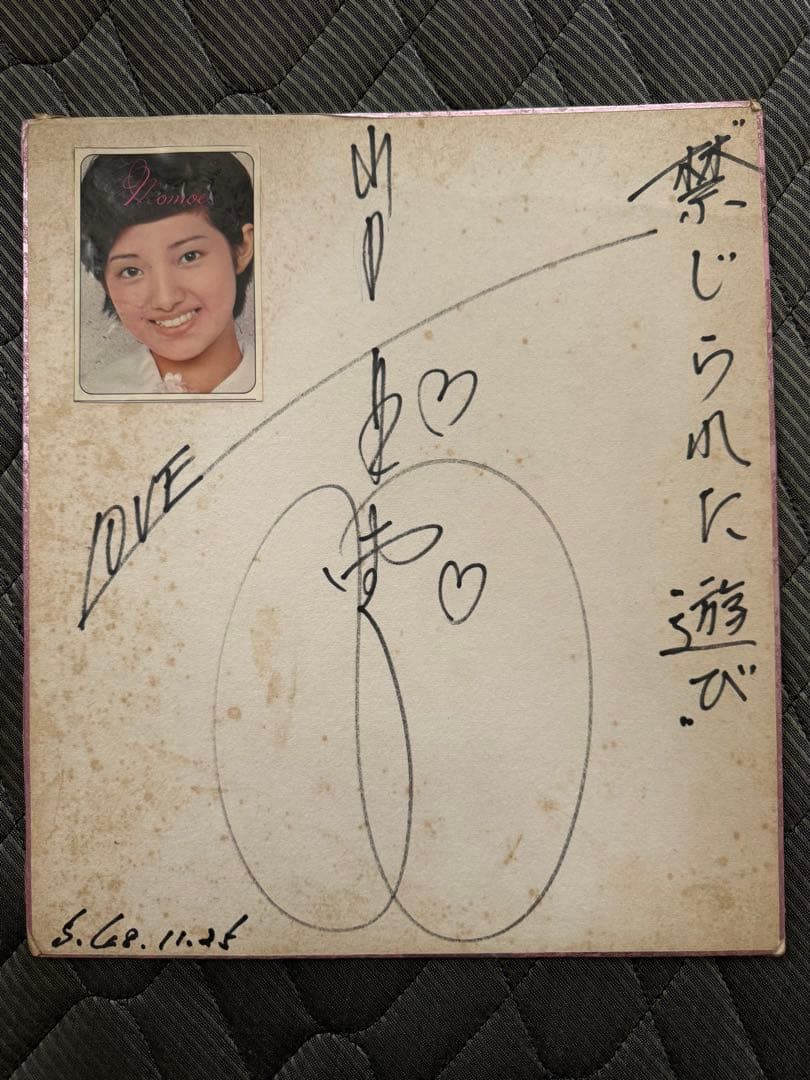 "禁じられた遊び"
山口百恵
Momoe
LOVE
S.48.11.25